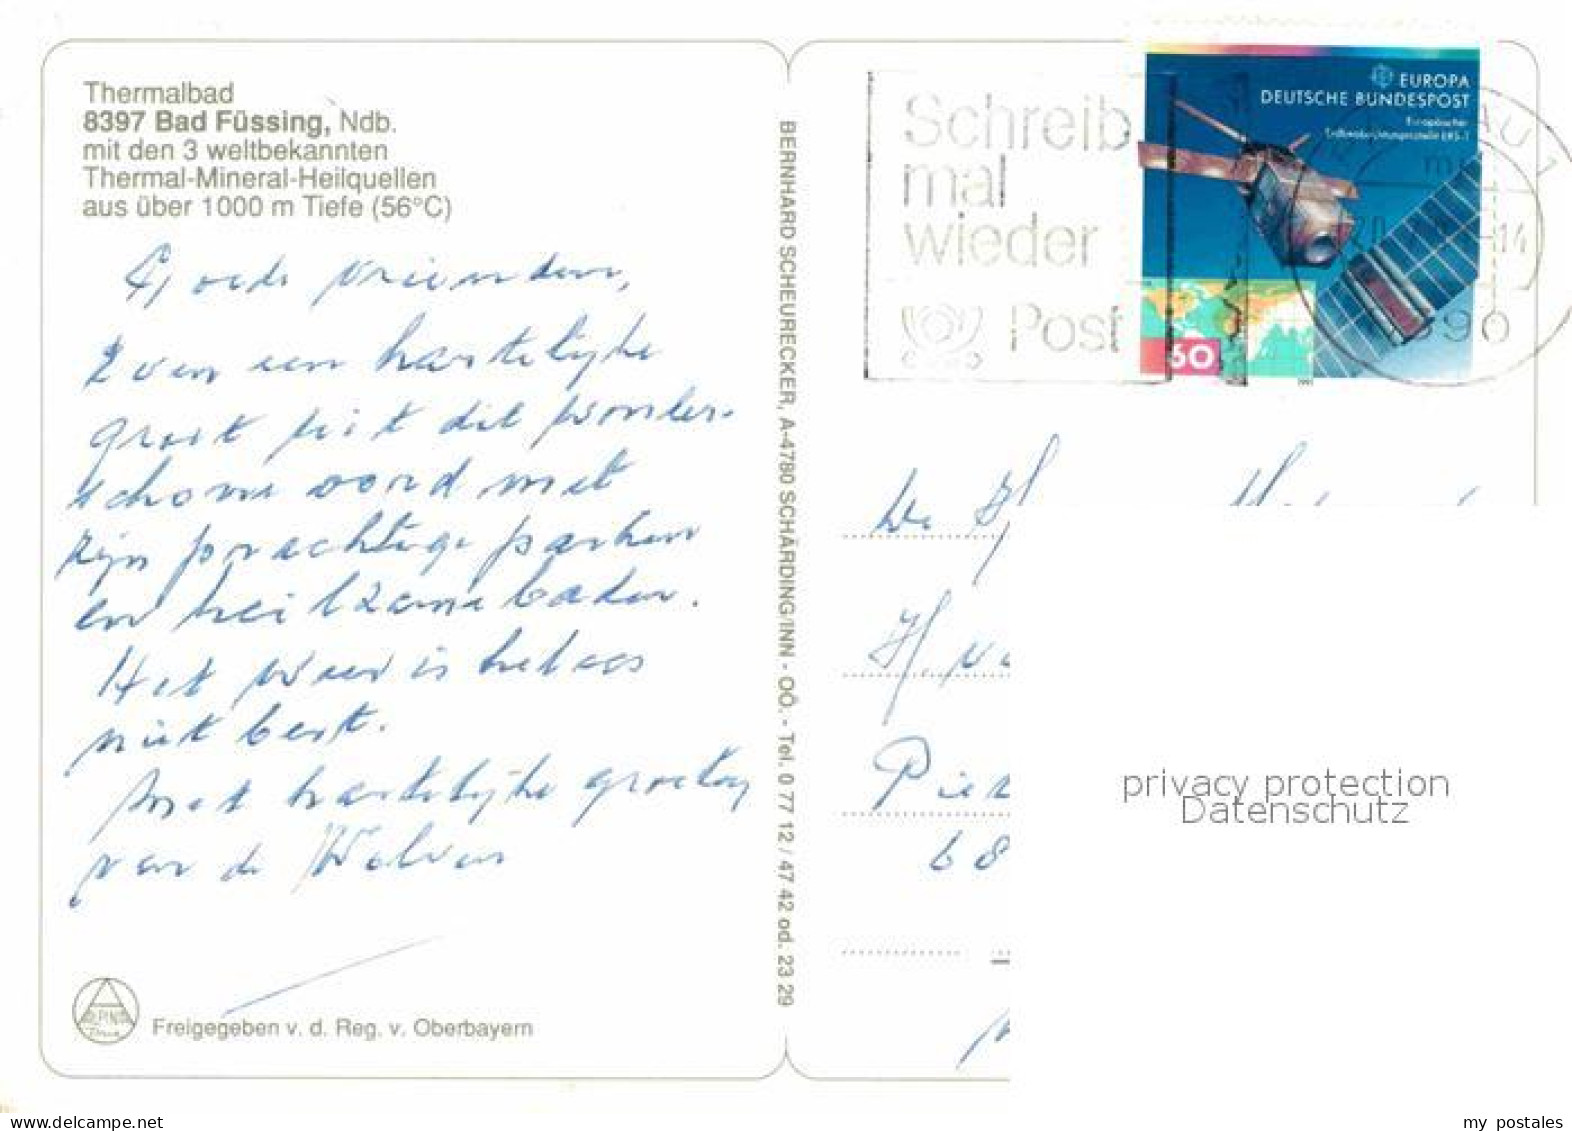 Thermalbad
8397 Bad Füssing, Ndb.
mit den 3 weltbekannten
Thermal-Mineral-Heilquellen
aus über 1000 m Tiefe (56°C)
Goede vrienden,
Even een hartelijke
groet uit dit wonder-
schone oord met
zijn prachtige parken
en heilzame baden.
Het weer is helaas
niet best.
Met hartelijke groeten
van de Wolven
Freigegeben v. d. Reg. v. Oberbayern
BERNHARD SCHEURECKER, A-4780 SCHÄRDING/INN - OÖ. - Tel. 0 77 12 / 47 42 od. 23 29
Schreib
mal
wieder
Post
EUROPA
DEUTSCHE BUNDESPOST
Europäischer
Erdbeobachtungssatellit ERS-1
60
AU 1
-14
390
De
H. v
Pie
68
privacy protection
Datenschutz
www.delcampe.net
my_postales